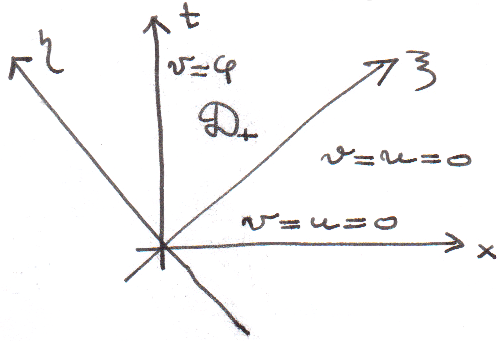 t
η
v=φ
ξ
D₊
v=u=0
v=u=0
x